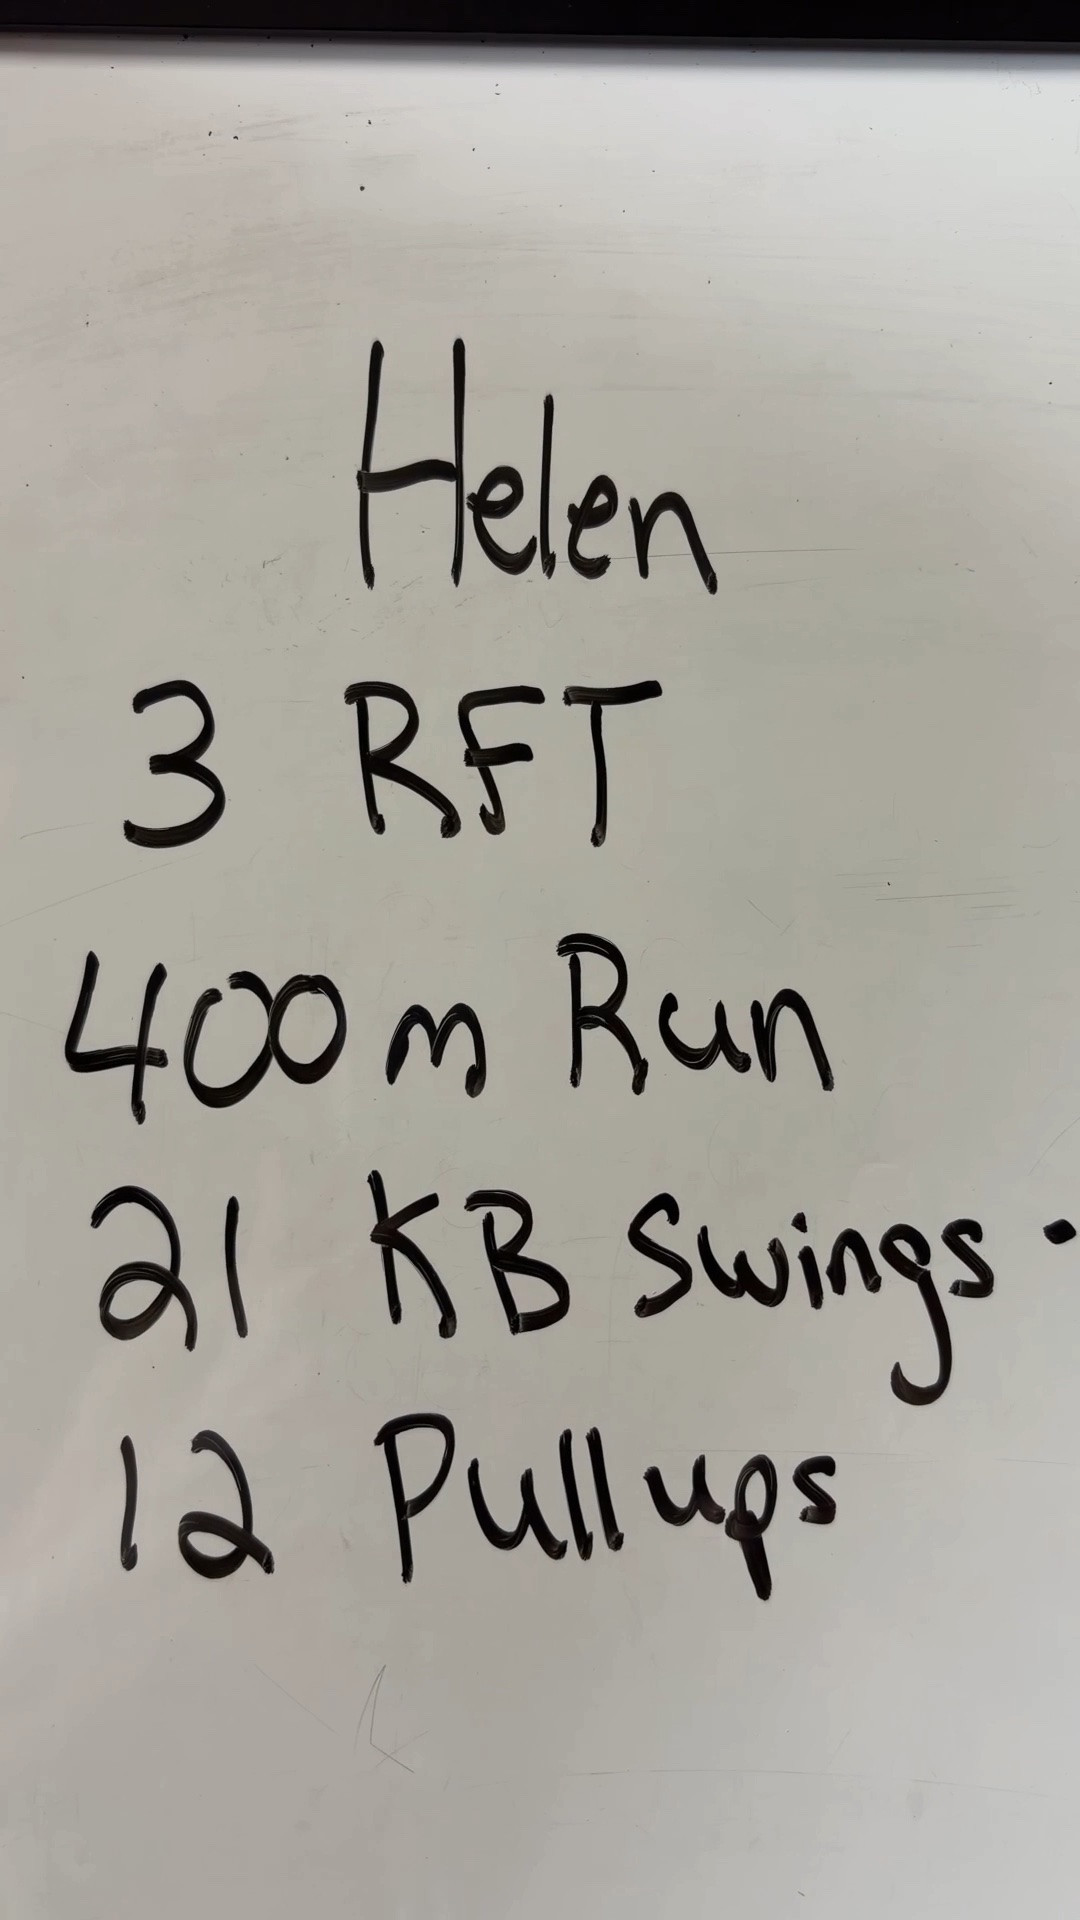 Helen
3 RFT
400m Run
21 KB Swings
12 Pullups